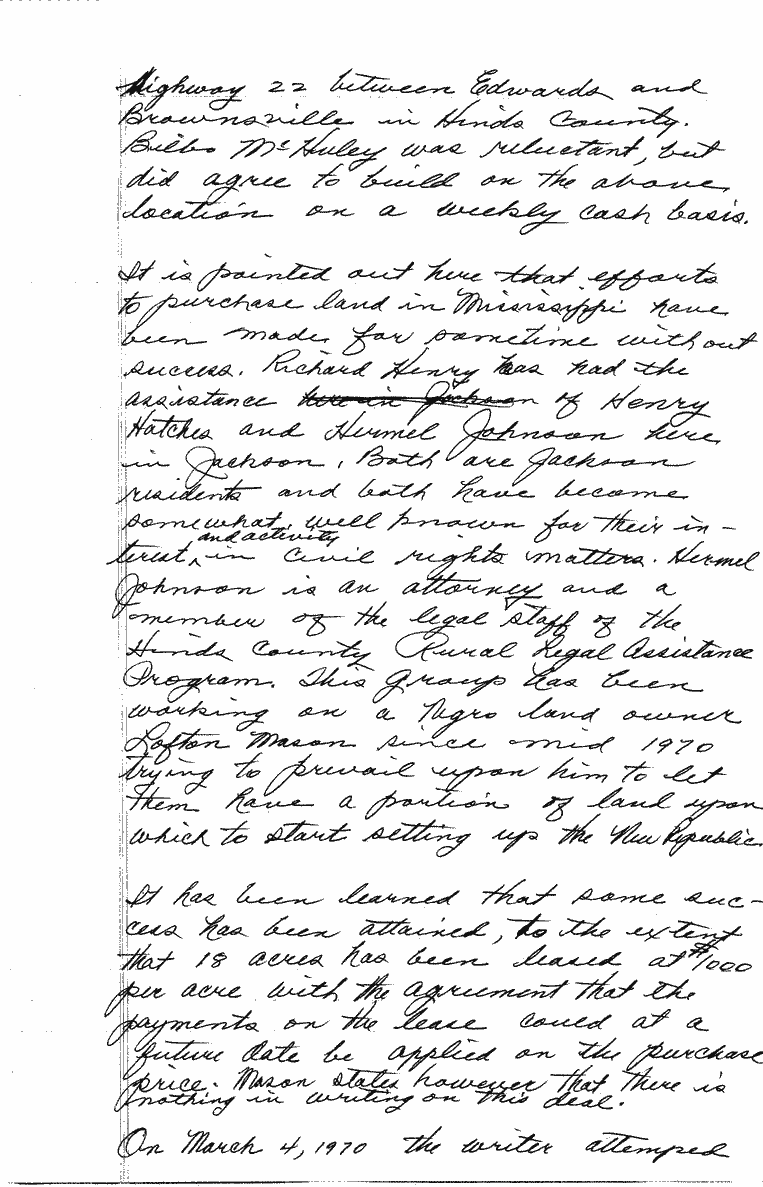 Highway 22 between Edwards and
Brownsville in Hinds County.
Bilbo McHuley was reluctant, but
did agree to build on the above
location on a weekly cash basis.
It is pointed out here that efforts
to purchase land in Mississippi have
been made for sometime without
success. Richard Henry has had the
assistance here in Jackson of Henry
Hatches and Hermel Johnson here
in Jackson. Both are Jackson
residents and both have become
somewhat well known for their in-
and activity
terest in civil rights matters. Hermel
Johnson is an attorney and a
member of the legal staff of the
Hinds County Rural Legal Assistance
Program. This Group has been
working on a Negro land owner
Lofton Mason since mid 1970
trying to prevail upon him to let
them have a portion of land upon
which to start setting up the New Republic.
It has been learned that some suc-
cess has been attained, to the extent
that 18 acres has been leased at $1000
per acre with the agreement that the
payments on the lease could at a
future date be applied on the purchase
price. Mason states however that there is
nothing in writing on this deal.
On March 4, 1970 the writer attemped